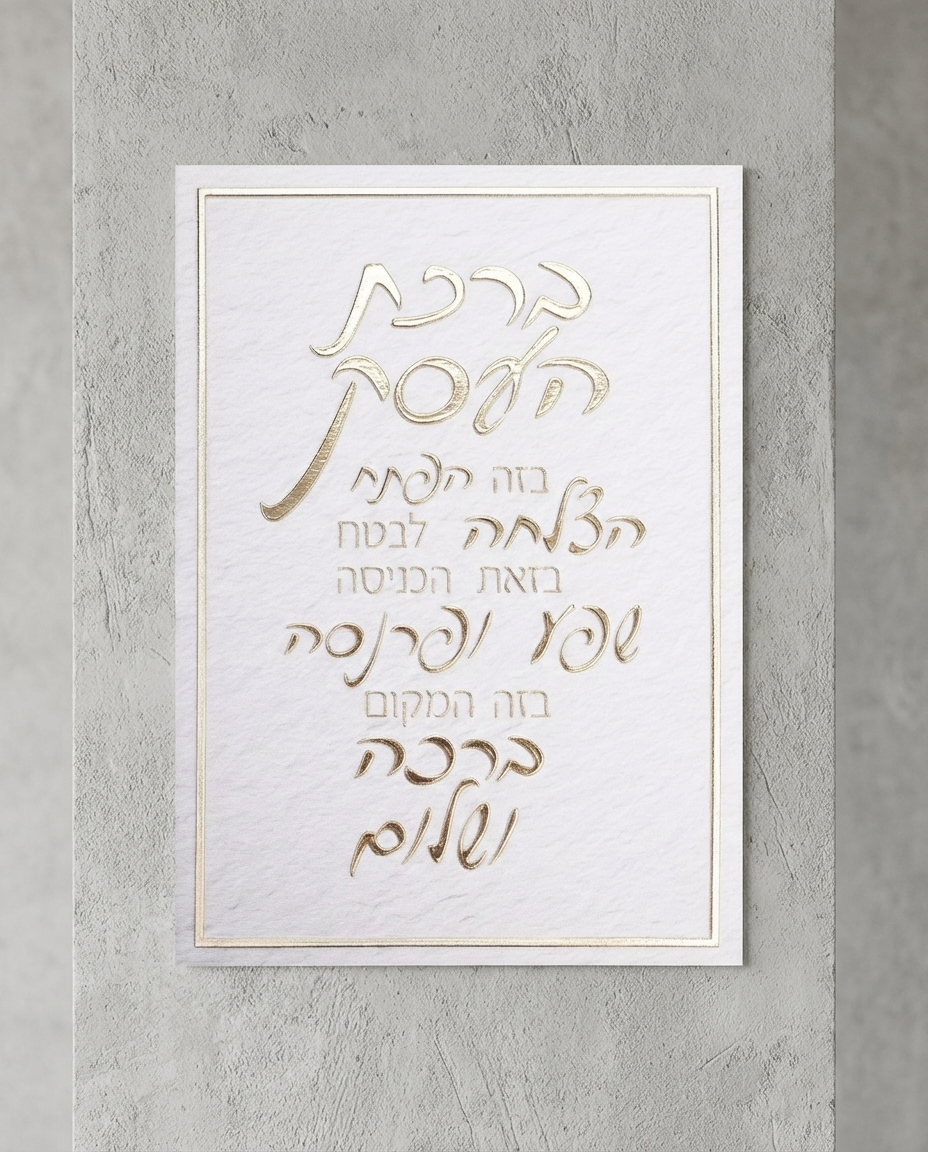 ברכת
העסק
בזה הפתח
הצלחה לבטח
בזאת הכניסה
שפע ופרנסה
בזה המקום
ברכה
ושלום